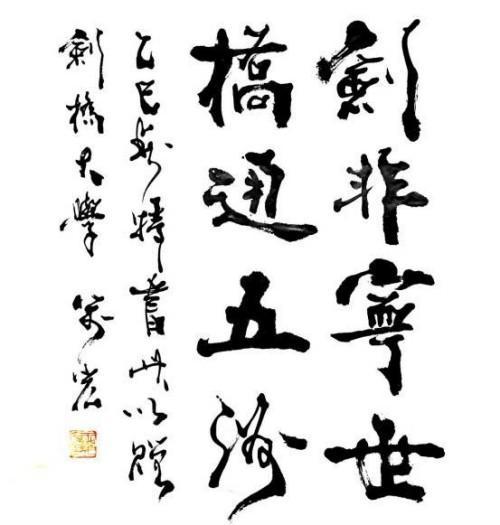 劍非寧世
橋通五洲
乙巳特書此以贈
劍橋大學